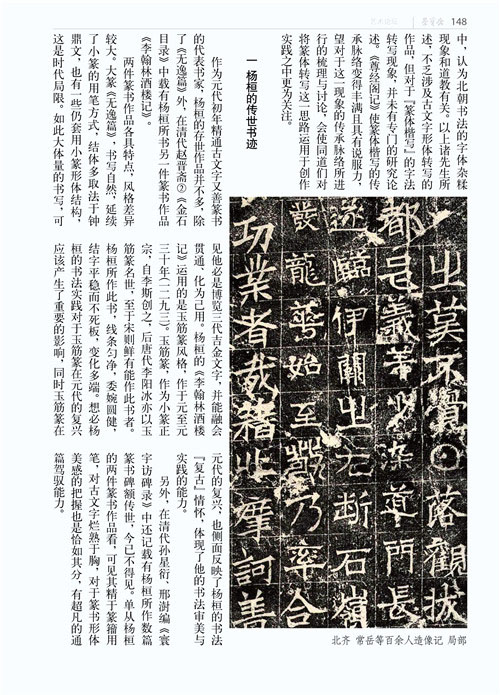 148
中，认为北朝书法的字体杂糅
现象和道教有关。以上诸先生所
述，不乏涉及古文字形体转写的
作品，但对于『篆体楷写』的字法
转写现象，并未有专门的研究论
述。《普经阁记》使篆体楷写的传
承脉络变得丰满且具有说服力，
望对于这一现象的传承脉络所进
行的梳理与讨论，会使同道们对
将篆体转写这一思路运用于创作
实践之中更为关注。
一 杨桓的传世书迹
作为元代初年精通古文字又善篆书
的代表书家，杨桓的存世作品并不多，除
了《无逸篇》外，在清代赵晋斋②《金石
目录》中载有杨桓所书另一件篆书作品
《李翰林酒楼记》。
两件篆书作品各具特点，风格差异
较大。大篆《无逸篇》，书写自然，延续
了小篆的用笔方式，结体多取法于钟
鼎文，也有一些仍套用小篆形体结构，
这是时代局限。如此大体量的书写，可
见他必是博览三代吉金文字，并能融会
贯通，化为己用。杨桓的《李翰林酒楼
记》运用的是玉筋篆风格，作于元至元
三十年（一二九三）。玉筋篆，作为小篆正
宗，自李斯创之，后唐代李阳冰亦以玉
筋篆名世，至于宋则鲜有能作此书者。
杨桓所作此书，线条匀净，委婉圆健，
结字平稳而不死板，变化多端。想必杨
桓的书法实践对于玉筋篆在元代的复兴
应该产生了重要的影响，同时玉筋篆在
元代的复兴，也侧面反映了杨桓的书法
『复古』情怀，体现了他的书法审美与
实践的能力。
另外，在清代孙星衍、邢澍编《寰
宇访碑录》中还记载有杨桓所作数篇
篆书碑额传世，今已不得见。单从杨桓
的两件篆书作品看，可见其精于篆籀用
笔，对古文字烂熟于胸，对于篆书形体
美感的把握也是恰如其分，有超凡的通
篇驾驭能力。
之莫不 落观拔
都邑义 深道门长
伊阙之 断石岭
龙华始至 乃率合
功业者哉 此摩诃善
北齐 常岳等百余人造像记 局部